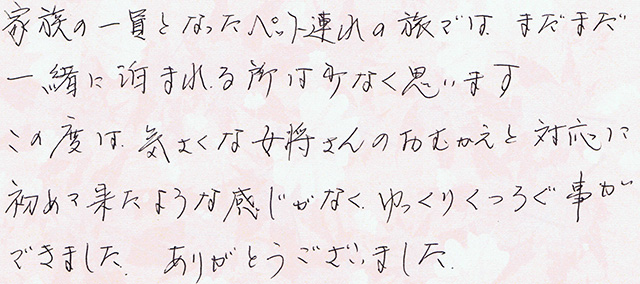 家族の一員となったペット連れの旅では まだまだ
一緒に泊まれる所は少なく思います
この度は 気さくな女将さんのおむかえと 対応に
初めて来たような感じがなく ゆっくりくつろぐ事が
できました. ありがとうございました.